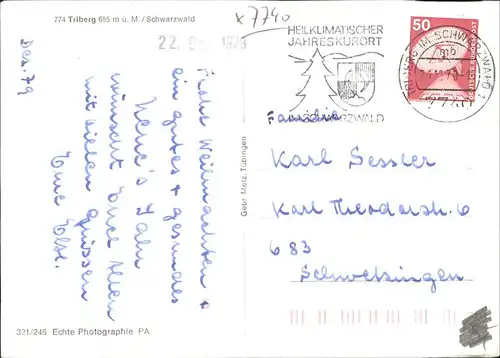 774 Triberg 685 m ü. M./Schwarzwald
x 7740
22. Dez. 1979
Dez. 79
Frohe Weihnachten +
ein gutes + gesundes
neue's Jahr
wünscht Euch allen
mit vielen Grüssen
Eure Else.
HEILKLIMATISCHER
JAHRESKURORT
SCHWARZWALD
50
DEUTSCHE BUNDESPOST
TRIBERG IM SCHWARZWALD 1
mb
Familie
Karl Sessler
Karl Theodorstr. 6
683
Schwetzingen
Gebr. Metz, Tübingen
321/246 Echte Photographie PA